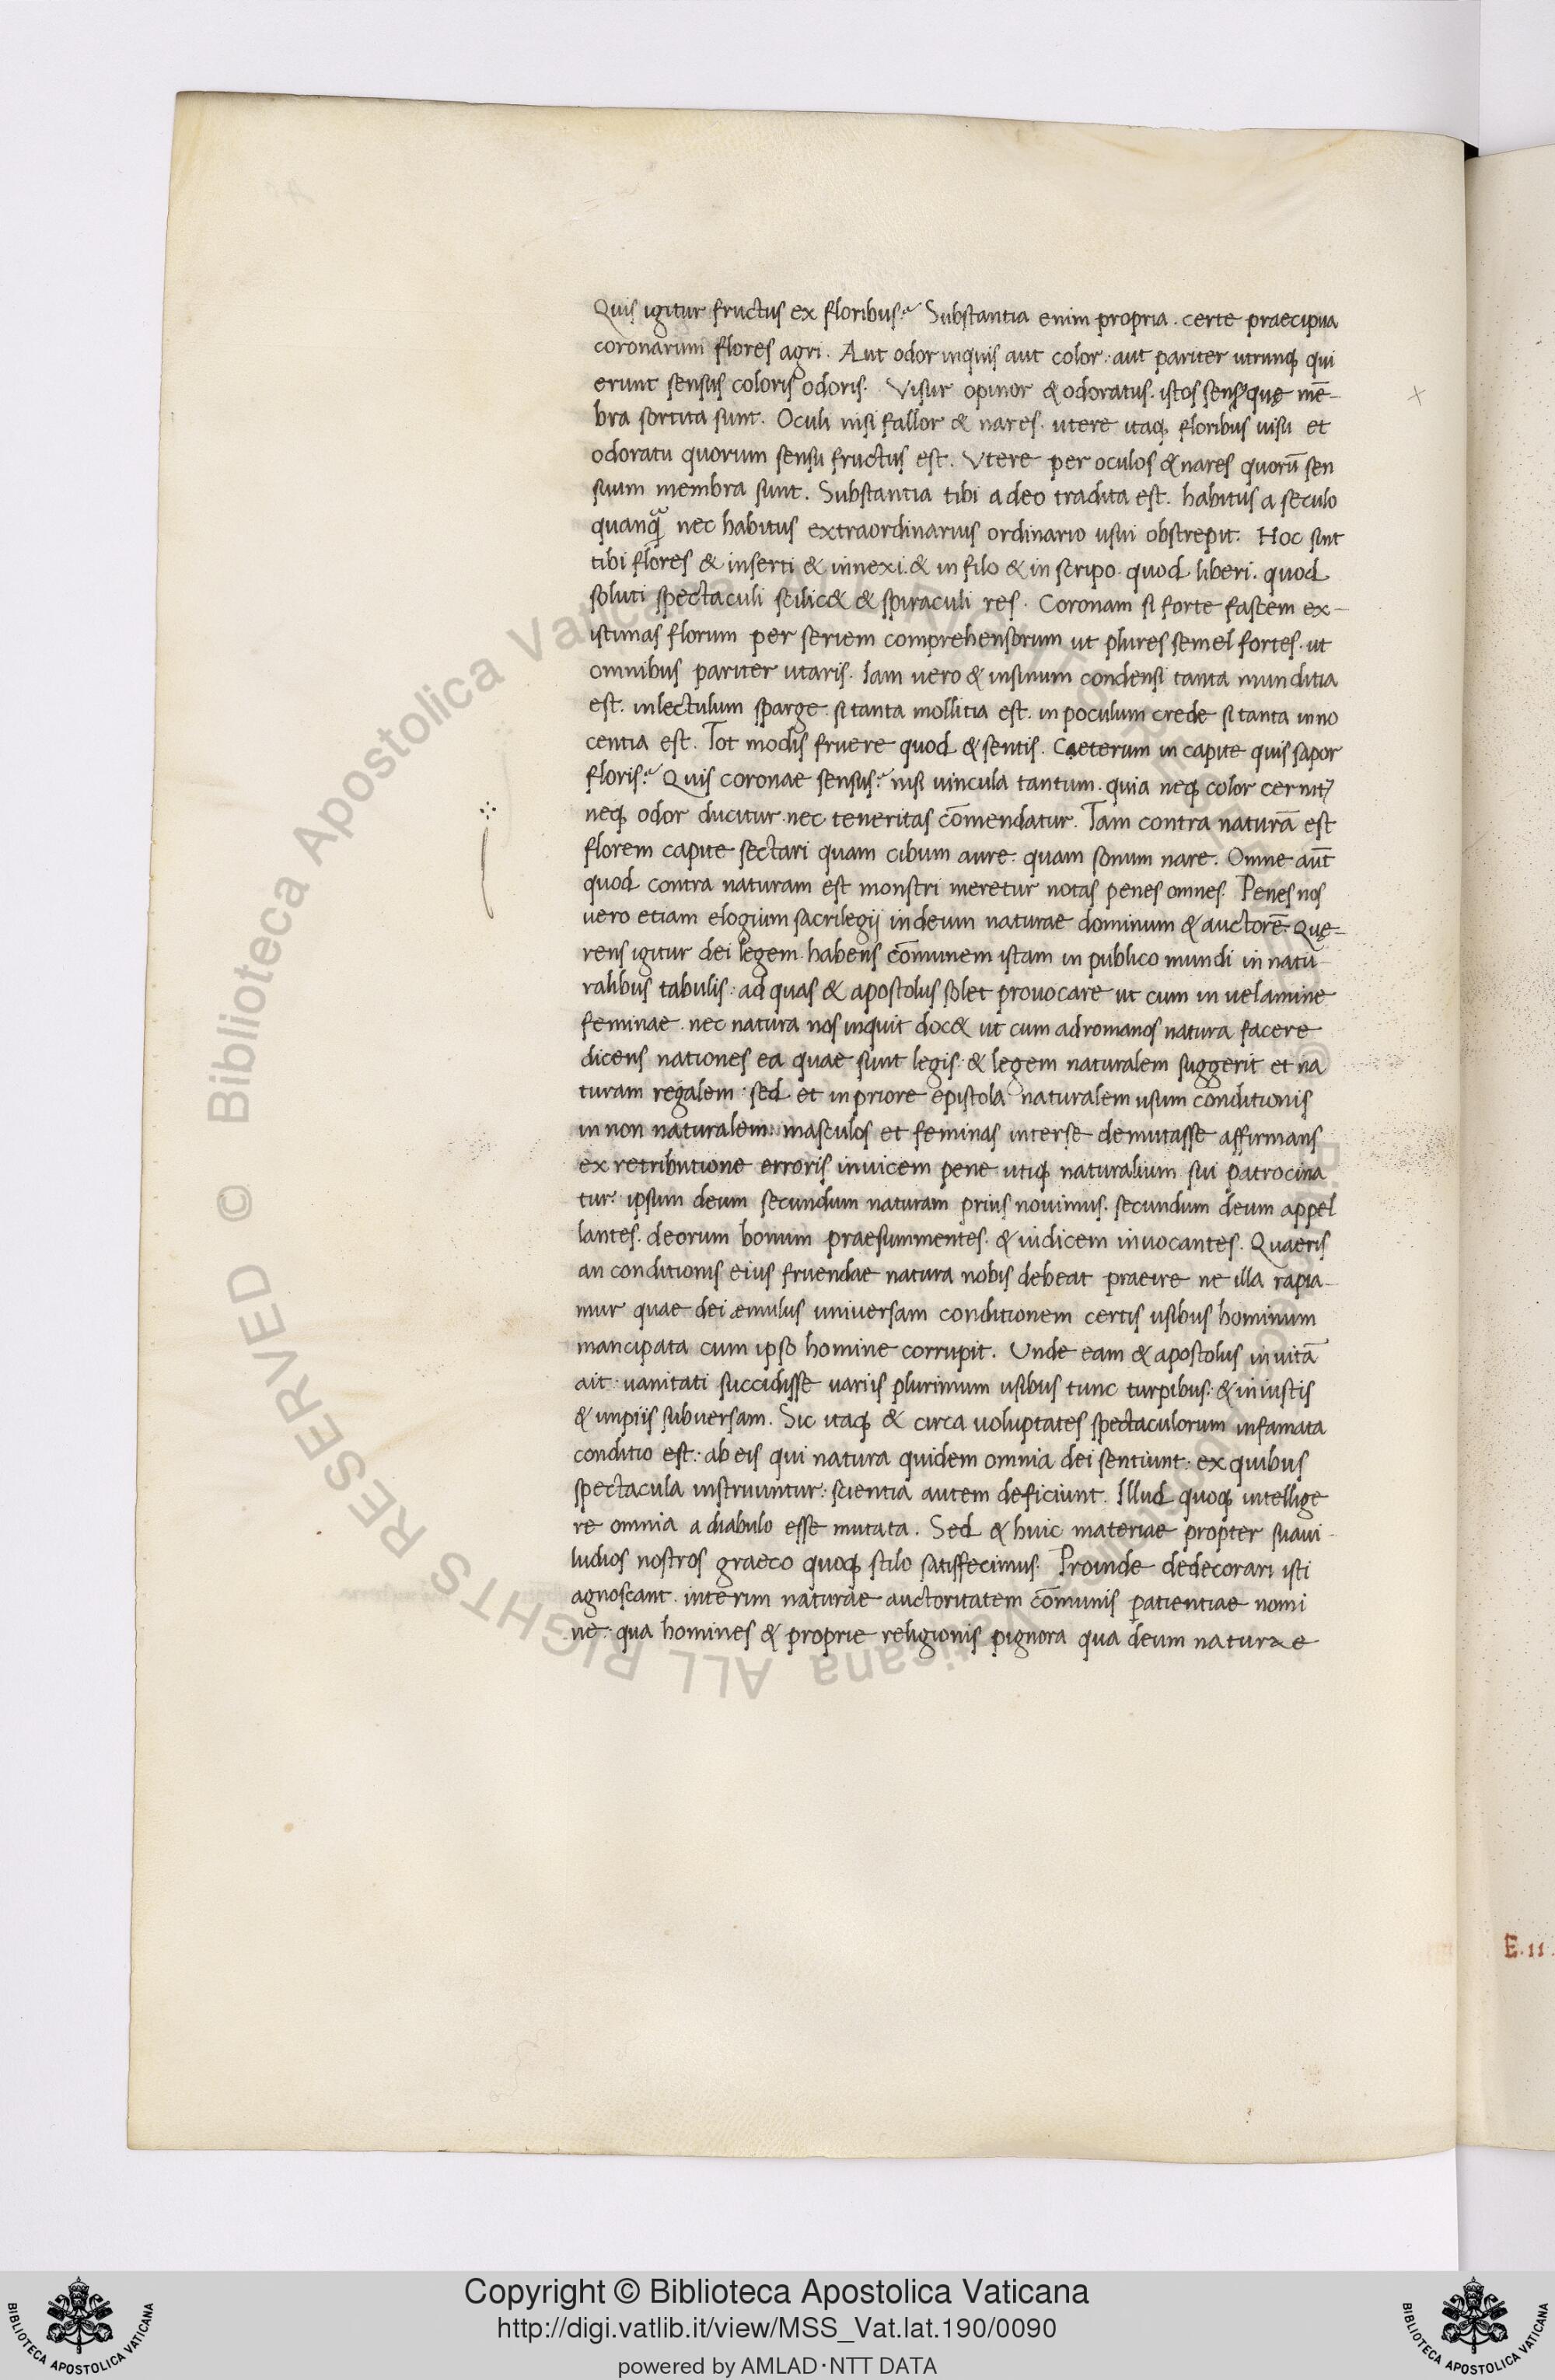 Quis igitur fructus ex floribus? Substantia enim propria. certe praecipua
coronarum flores agri. Aut odor inquis aut color. aut pariter utrunq; qui
erunt sensus coloris odoris. Visur opinor & odoratus. istos sensꝰ quę mē-
bra sortita sunt. Oculi nisi fallor & nares. utere itaq; floribus uisu et
odoratu quorum sensu fructus est. Vtere per oculos & nares quorū sen
suum membra sunt. Substantia tibi a deo tradita est. habitus a seculo
quanq̃ nec habitus extraordinarius ordinario usui obstrepit. Hoc sint
tibi flores & inserti & innexi. & in filo & in scripo. quod liberi. quod
soluti spectaculi scilic& & spiraculi res. Coronam si forte fascem ex-
istimas florum per seriem comprehensorum ut plures semel fortes. ut
omnibus pariter utaris. Iam uero & insinum condensi tanta munditia
est. inlectulum sparge. si tanta mollitia est. in poculum crede si tanta inno
centia est. Tot modis fruere quod & sentis. Caeterum in capite quis sapor
floris? Quis coronae sensus? nisi uincula tantum. quia neq; color cernit̃
neq; odor ducitur. nec teneritas cōmendatur. Tam contra naturā est
florem capite sectari quam cibum aure. quam sonum nare. Omne aūt
quod contra naturam est monstri meretur notas penes omnes. Penes nos
uero etiam elogium sacrilegij indeum naturae dominum & auctorē. Quę-
rens igitur dei legem. habens cōmunem istam in publico mundi in natu
ralibus tabulis. ad quas & apostolus solet prouocare ut cum in uelamine
feminae. nec natura nos inquit doc& ut cum ad romanos natura facere
dicens nationes ea quae sunt legis. & legem naturalem suggerit et na
turam regalem. sed et in priore epistola naturalem usum conditionis
in non naturalem. masculos et feminas interse demutasse affirmans
ex retributione erroris inuicem pene. utiq; naturalium sui patrocina
tur. ipsum deum secundum naturam prius nouimus. secundum deum appel
lantes. deorum bonum praesummentes. & iudicem inuocantes. Quaeris
an conditionis eius fruendae natura nobis debeat praeire ne illa rapia-
mur quae dei æmulus uniuersam conditionem certis usibus hominum
mancipata cum ipso homine corrupit. Unde eam & apostolus inuitā
ait. uanitati succidisse uariis plurimum usibus tunc turpibus. & iniustis
& impiis subuersam. Sic itaq; & circa uoluptates spectaculorum infamata
conditio est. ab eis qui natura quidem omnia dei sentiunt. ex quibus
spectacula instruuntur. scientia autem deficiunt. Illud quoq; intellige
re omnia a diabulo esse mutata. Sed & huic materiae propter suaui-
ludios nostros graeco quoq; stilo satisfecimus. Proinde dedecorari isti
agnoscant. interim naturae auctoritatem cōmunis patientiae nomi
ne. qua homines & proprie religionis pignora qua deum naturae
E. 11.
© Biblioteca Apostolica Vaticana ALL RIGHTS RESERVED
Copyright © Biblioteca Apostolica Vaticana
http://digi.vatlib.it/view/MSS_Vat.lat.190/0090
powered by AMLAD·NTT DATA
BIBLIOTECA APOSTOLICA VATICANA
BIBLIOTECA APOSTOLICA VATICANA